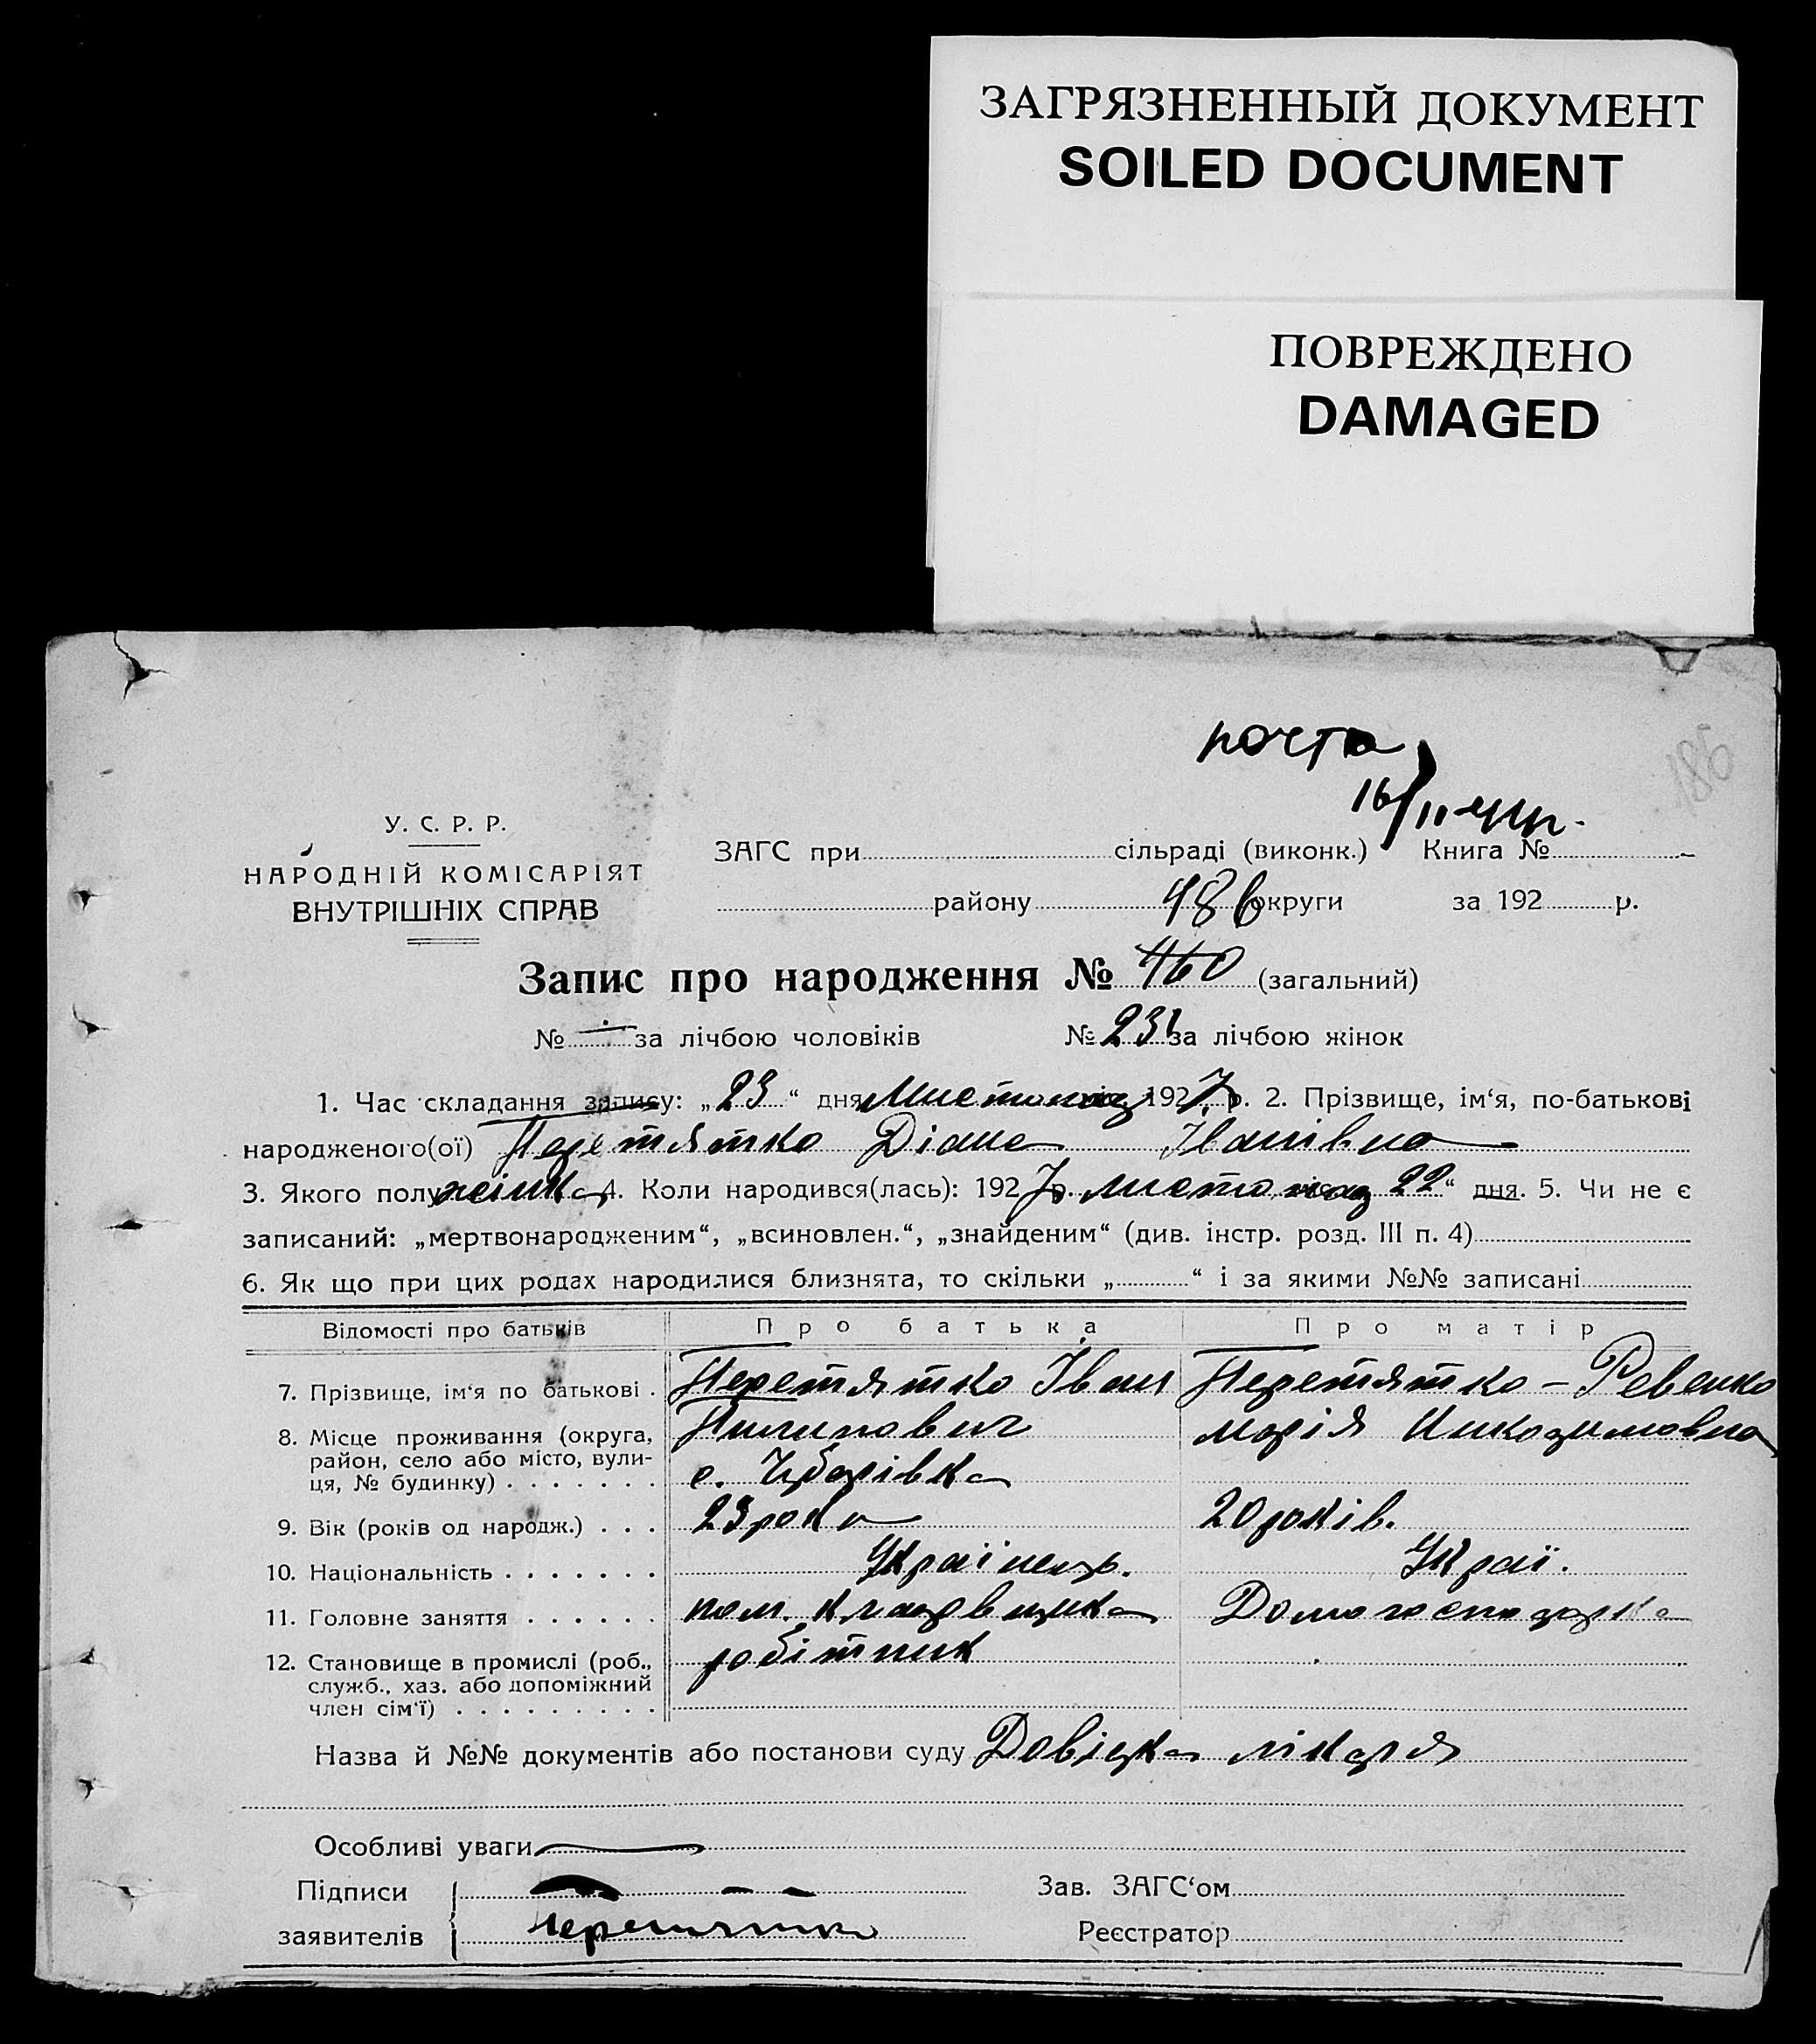 ЗАГРЯЗНЕННЫЙ ДОКУМЕНТ
SOILED DOCUMENT
ПОВРЕЖДЕНО
DAMAGED
почта
186
16/II
У. С. Р. Р.
НАРОДНІЙ КОМІСАРІЯТ
ВНУТРІШНІХ СПРАВ
ЗАГС при сільраді (виконк.) Книга №
району округи за 192 р.
486
Запис про народження № 460 (загальний)
№ за лічбою чоловіків № 231 за лічбою жінок
1. Час складання запису: „23“ дня Листопад 1927 р. 2. Прізвище, ім‘я, по-батькові
народженого(ої) Перетятко Діана Іванівна
3. Якого полу жінка 4. Коли народився(лась): 1927 р. листопад 22“ дня. 5. Чи не є
записаний: „мертвонародженим“, „всиновлен.“, „знайденим“ (див. інстр. розд. III п. 4)
6. Як що при цих родах народилися близнята, то скільки „ “ і за якими №№ записані
Відомості про батьків Про батька Про матір
7. Прізвище, ім‘я по батькові . Перетятко Іван Перетятко – Ревенко
8. Місце проживання (округа, Пилипович марія Никодимовна
район, село або місто, вули-
ця, № будинку) . . . . . . . с. Чубарівка
9. Вік (років од народж.) . . . 23 роки 20 років.
10. Національність . . . . . . . Українець. Украї.
11. Головне заняття . . . . . . пом. кладовщика Домогосподарка
12. Становище в промислі (роб., робітник
служб., хаз. або допоміжний
член сім‘ї) . . . . . . . . .
Назва й №№ документів або постанови суду Довідка лікаря
Особливі уваги
Підписи Зав. ЗАГС‘ом
заявителів Перетятко Реєстратор